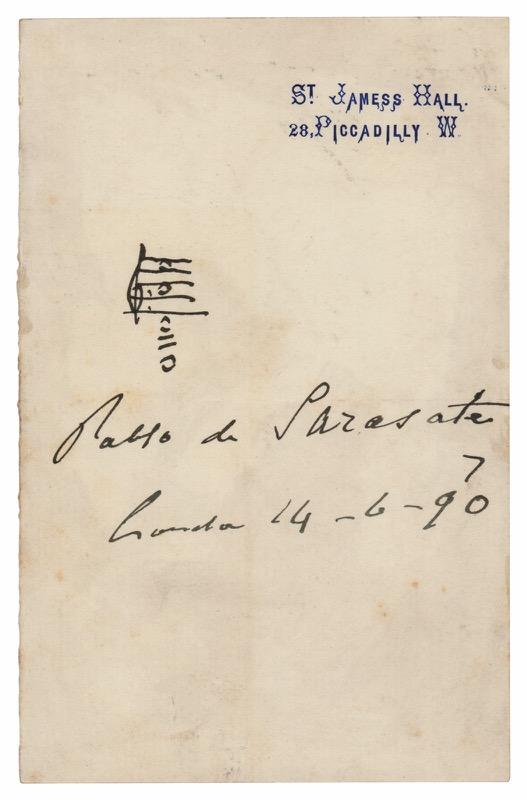 ST JAMESS HALL.
28, PICCADILLY W.
Pablo de Sarasate
14-6-90